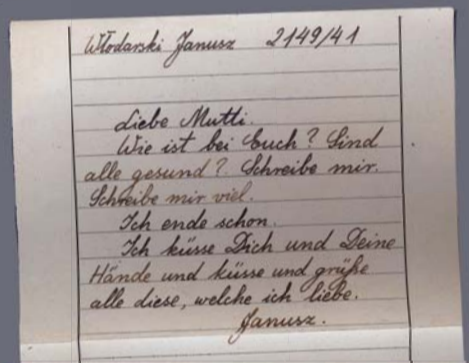 Włodarski Janusz 2149/41
Liebe Mutti.
Wie ist bei Euch? Sind
alle gesund? Schreibe mir.
Schreibe mir viel.
Ich ende schon.
Ich küsse Dich und Deine
Hände und küsse und grüße
alle diese, welche ich liebe.
Janusz.